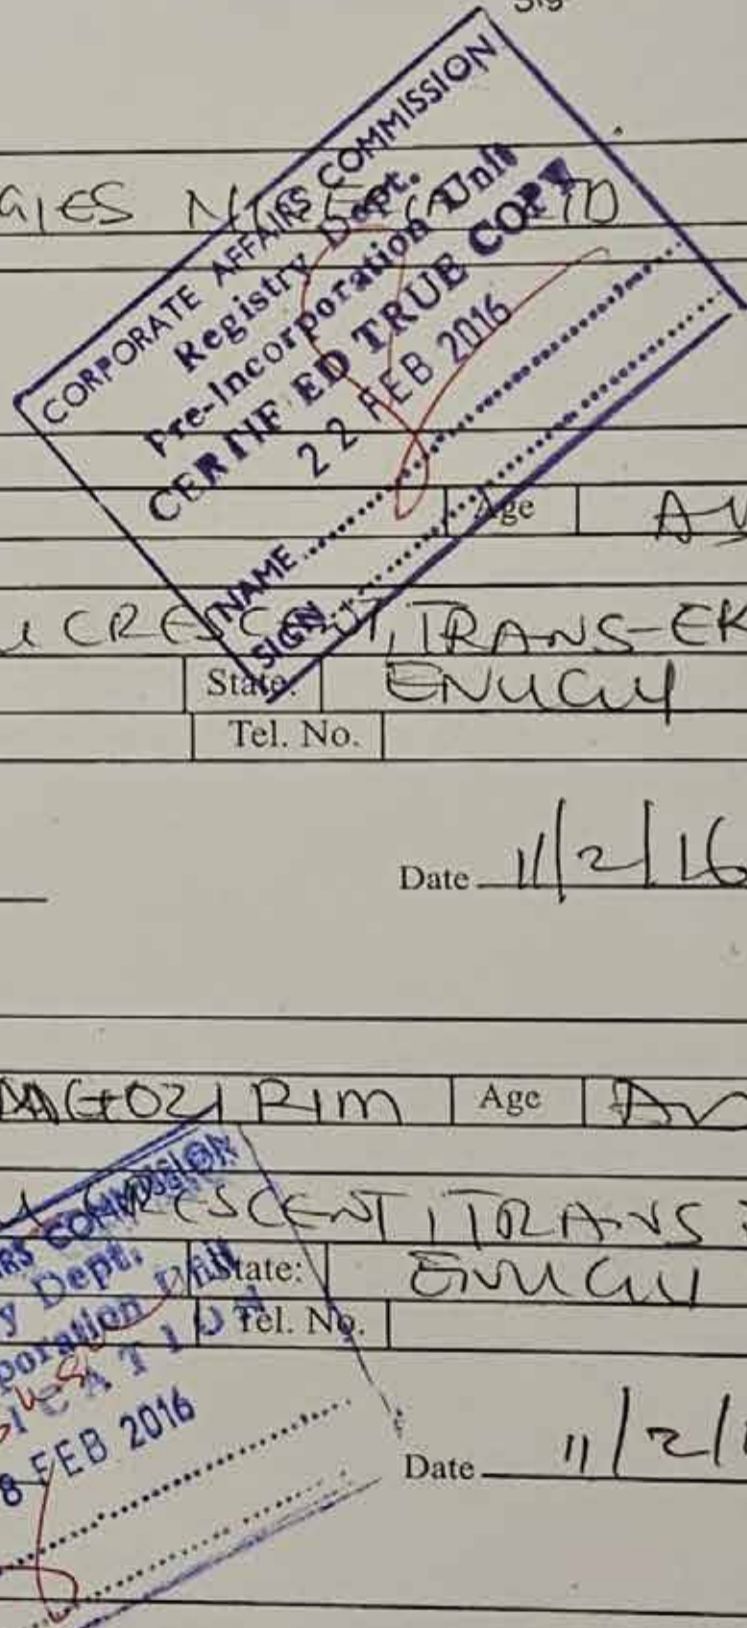 GIES NIGERIA LTD
CORPORATE AFFAIRS COMMISSION
Registry Dept.
Pre-Incorporation Unit
CERTIFIED TRUE COPY
22 FEB 2016
NAME
SIGN
Age
CRESCENT, TRANS-EK
State: ENUGU
Tel. No.
Date 11/2/16
RIM Age
CRESCENT, TRANS
State: ENUGU
Tel. No.
RS COMMISSION
y Dept.
poration Unit
8 FEB 2016
Date 11/2/1